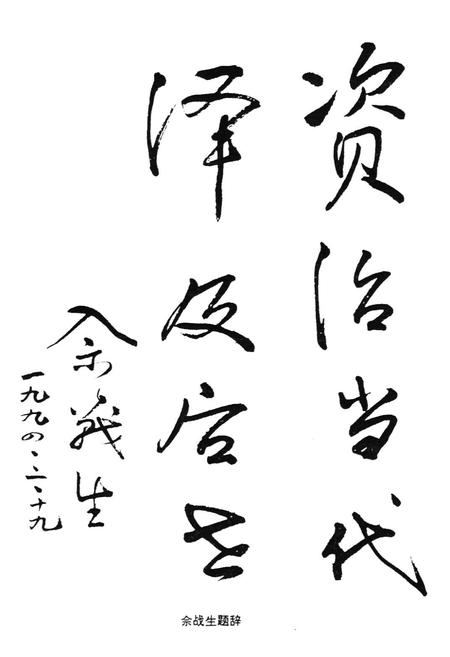 资治当代
泽及后世
余战生
一九九四、二、十九
余战生题辞